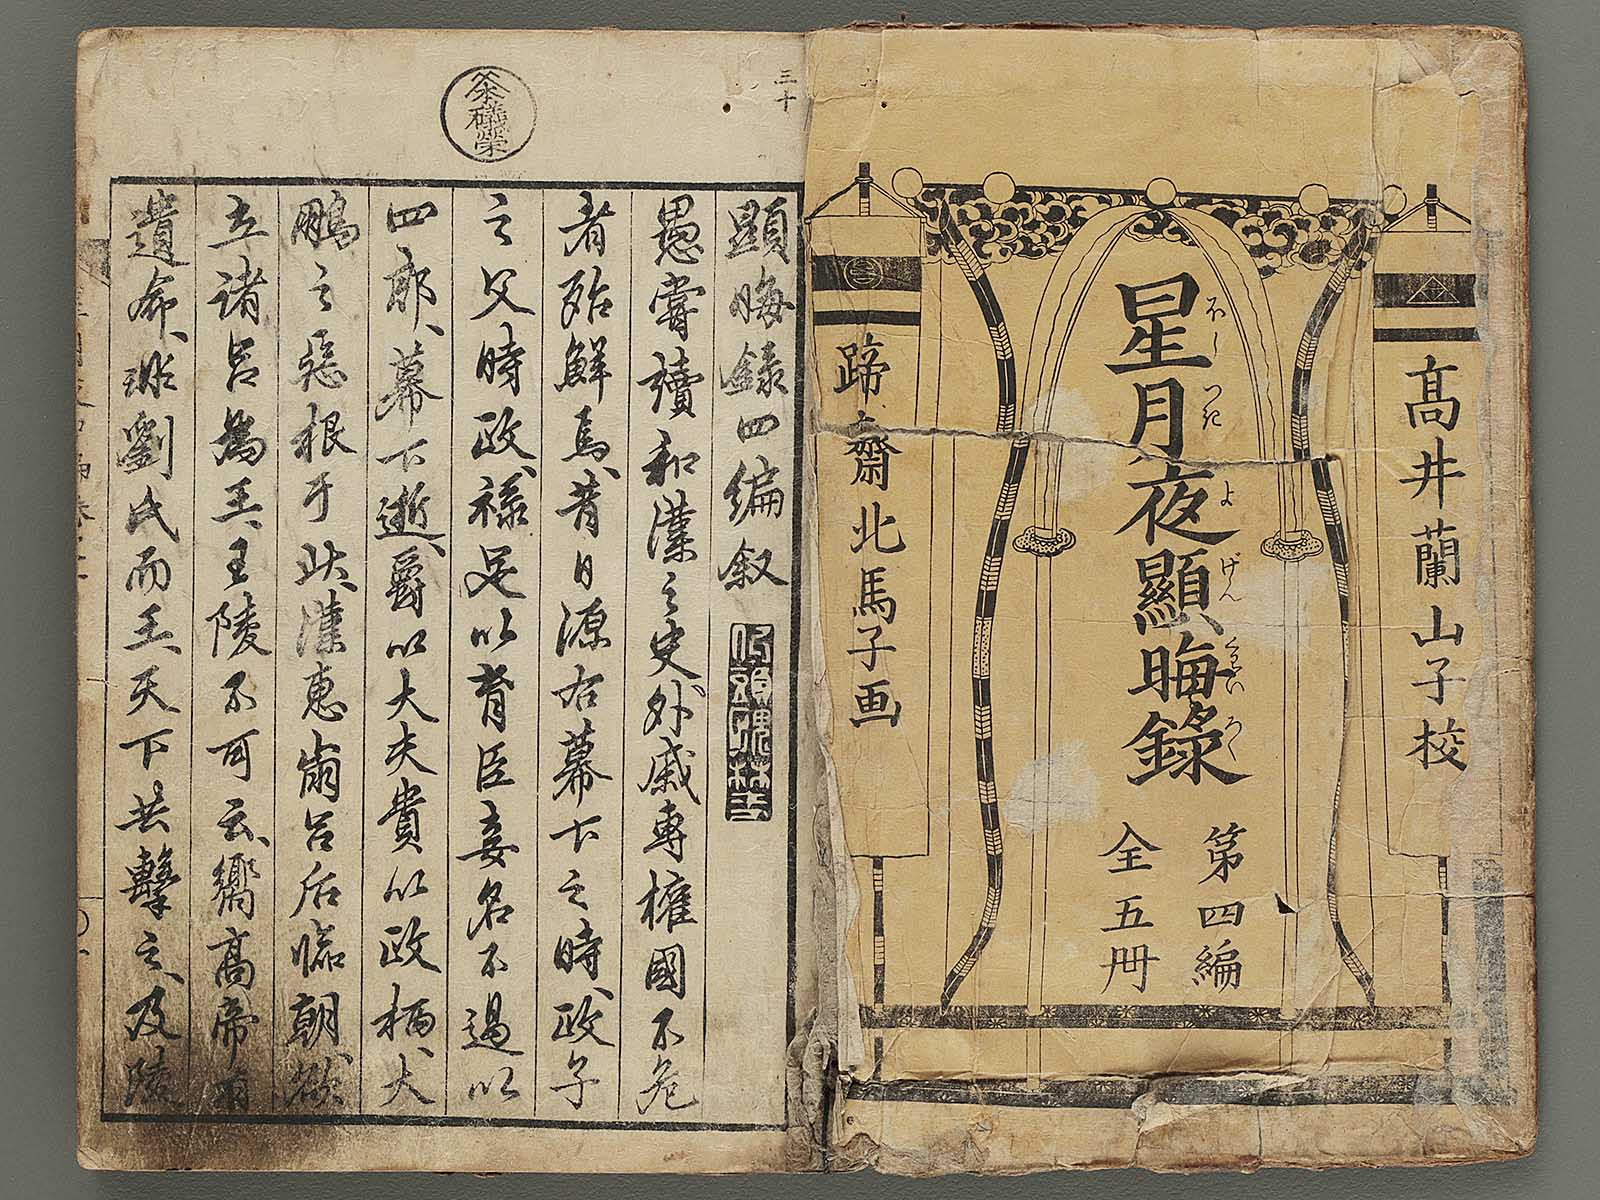 髙井蘭山子校
星月夜顯晦錄
ほし つき よ げん くわい ろく
第四編
全五冊
蹄齋北馬子画
三十
顕晦録四編叙
愚甞讀和漢之史外戚專權國不危
者殆鮮焉昔日源右幕下之時政子
之父時政禄足以育臣妾名不過以
四郎幕下逝爵以大夫貴以政柄大
鵬之惡根于此漢惠崩呂后臨朝欲
立諸呂為王王陵不可云嚮髙帝有
遺命非劉氏而王天下共擊之及陵